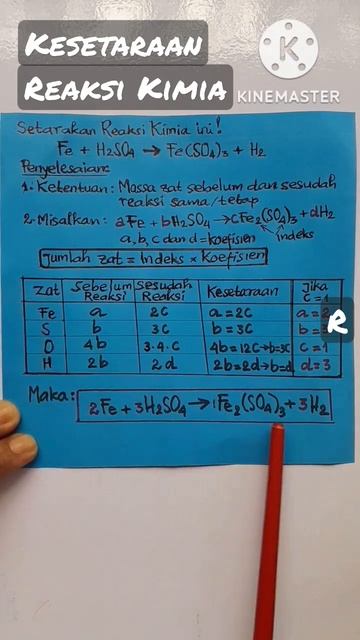 KESETARAAN
REAKSI KIMIA
KINEMASTER
Setarakan Reaksi Kimia ini!
Fe + H₂SO₄ → Fe(SO₄)₃ + H₂
Penyelesaian:
1. Ketentuan: Massa zat sebelum dan sesudah
reaksi sama/tetap
2. Misalkan: aFe + bH₂SO₄ → cFe₂(SO₄)₃ + dH₂
a, b, c dan d = koefisien indeks
Jumlah zat = Indeks × Koefisien
Zat Sebelum Reaksi Sesudah Reaksi Kesetaraan Jika c = 1
Fe a 2c a = 2c a =
S b 3c b = 3c b =
O 4b 3.4.c 4b = 12c → b = 3c c = 1
H 2b 2d 2b = 2d → b = d d = 3
R
Maka: 2Fe + 3H₂SO₄ → 1Fe₂(SO₄)₃ + 3H₂